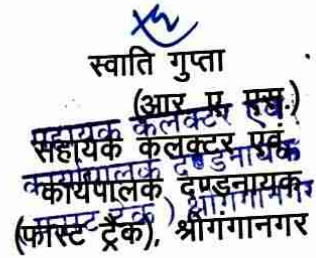 स्वाति गुप्ता
(आर ए एस.)
सहायक कलक्टर एवं
कार्यपालक दण्डनायक
(फास्ट ट्रैक), श्रीगंगानगर